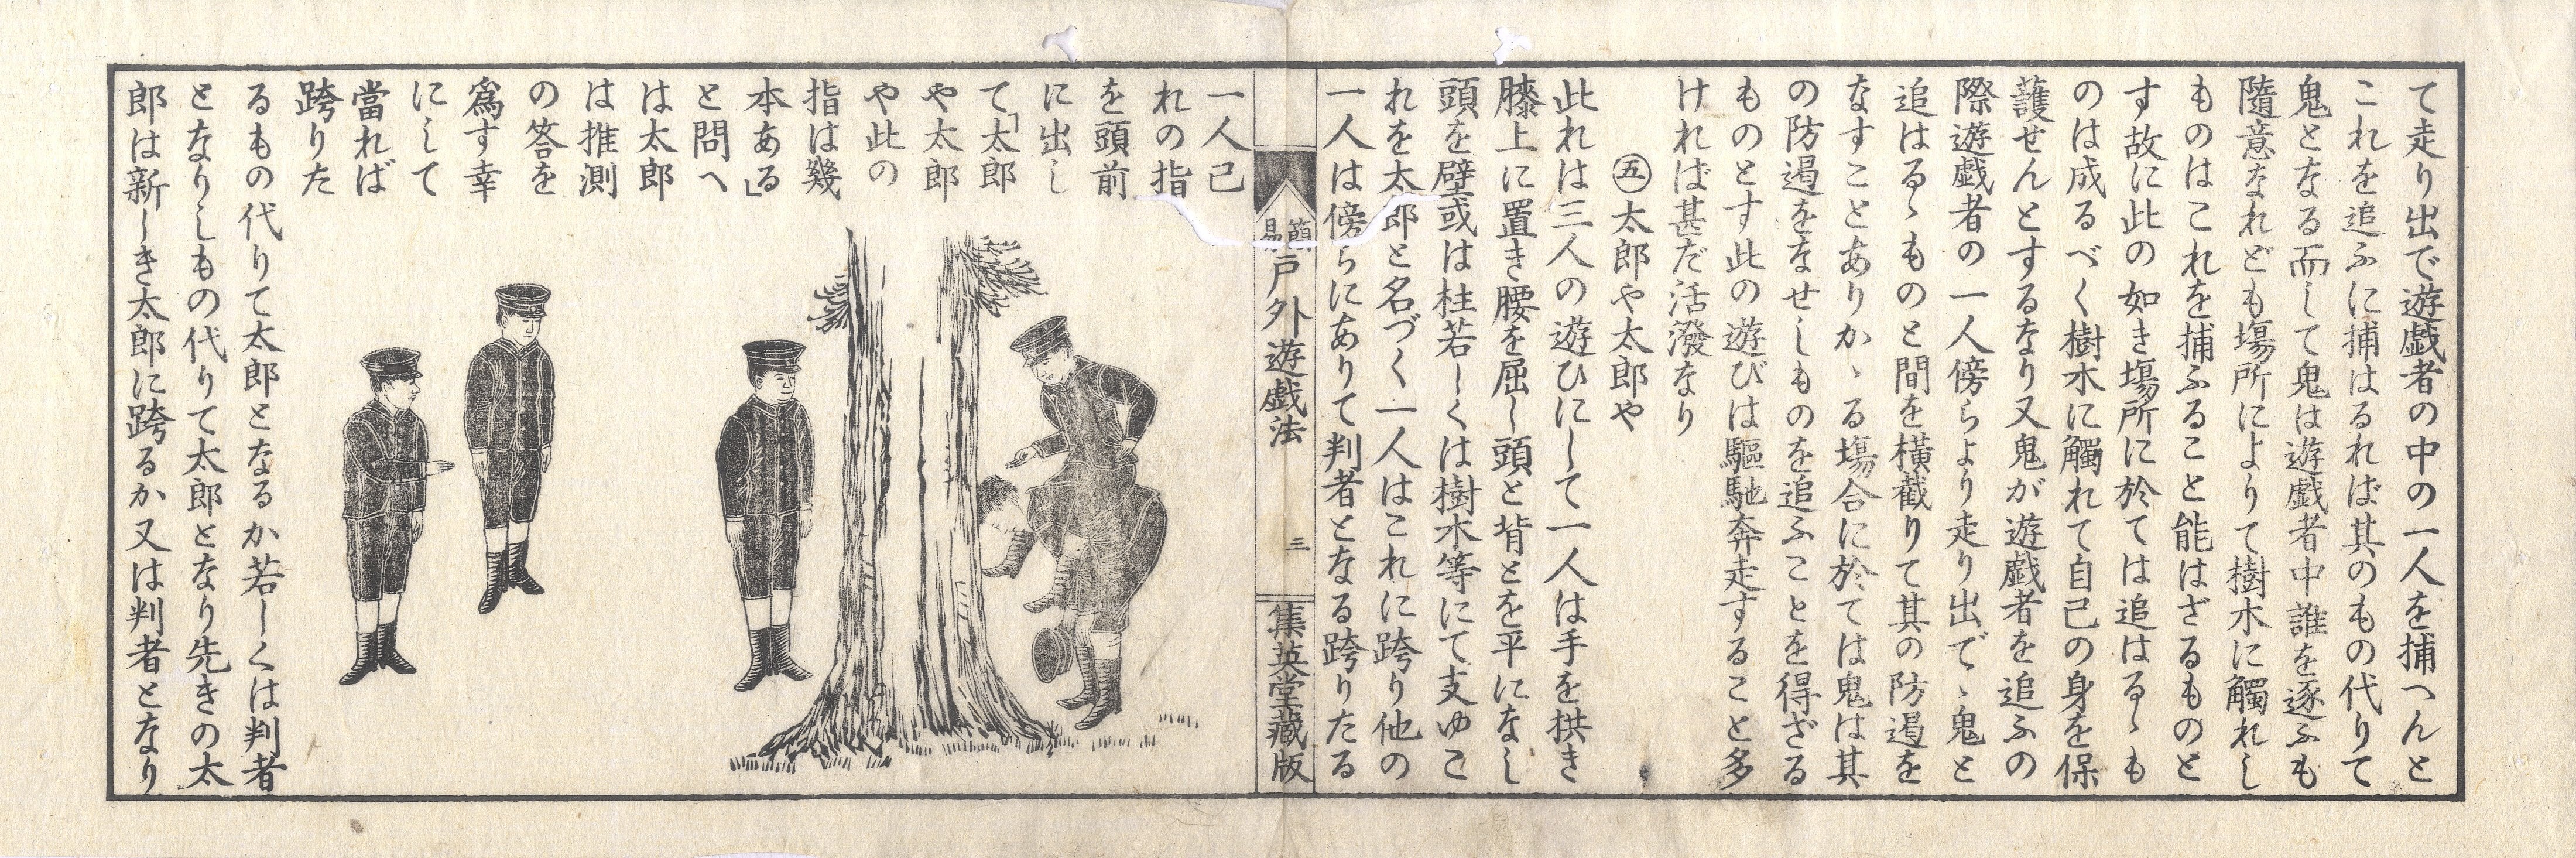 て走り出で遊戯者の中の一人を捕へんと
これを追ふに捕はるれば其のもの代りて
鬼となる而して鬼は遊戯者中誰を逐ふも
隨意なれども塲所によりて樹木に觸れし
ものはこれを捕ふること能はざるものと
す故に此の如き塲所に於ては追はるゝも
のは成るべく樹木に觸れて自己の身を保
護せんとするなり又鬼が遊戯者を追ふの
際遊戯者の一人傍らより走り出でゝ鬼と
追はるゝものと間を橫截りて其の防遏を
なすことありかゝる塲合に於ては鬼は其
の防遏をなせしものを追ふことを得ざる
ものとす此の遊びは驅馳奔走すること多
ければ甚だ活潑なり
㊄太郎や太郎や
此れは三人の遊ひにして一人は手を拱き
膝上に置き腰を屈し頭と背とを平になし
頭を壁或は柱若しくは樹木等にて支ゆこ
れを太郎と名づく一人はこれに跨り他の
一人は傍らにありて判者となる跨りたる
簡易戸外遊戯法
三
集英堂藏版
一人己
れの指
を頭前
に出し
て「太郎
や太郎
や此の
指は幾
本ある」
と問へ
は太郎
は推測
の答を
爲す幸
にして
當れば
跨りた
るもの代りて太郎となるか若しくは判者
となりしもの代りて太郎となり先きの太
郎は新しき太郎に跨るか又は判者となり